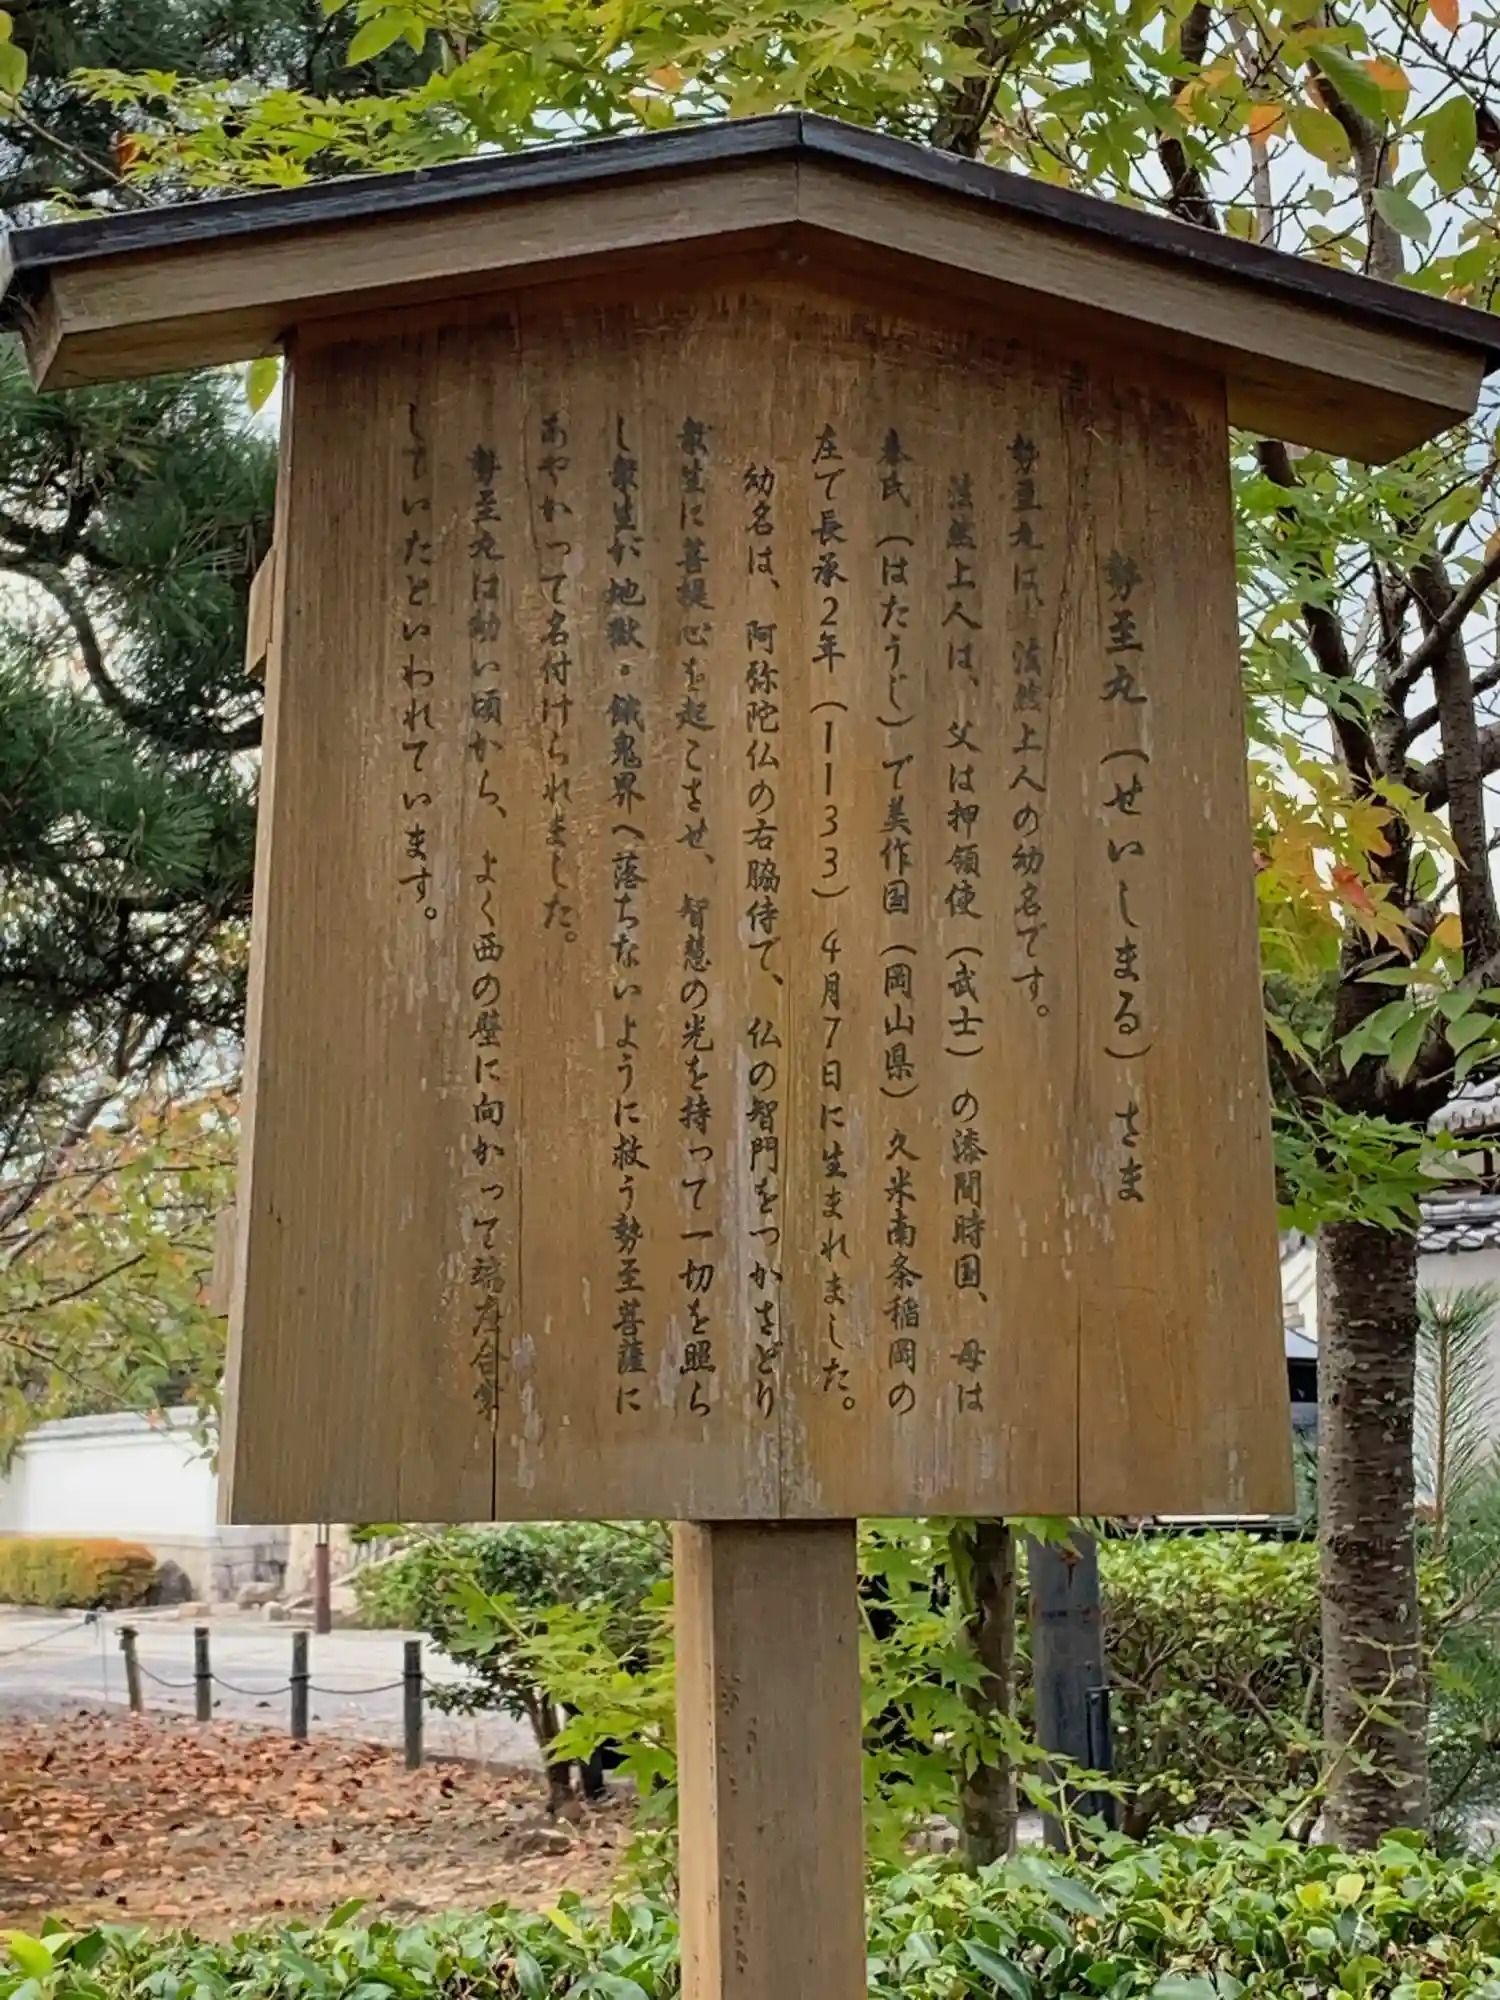 勢至丸(せいしまる)さま
勢至丸は、法然上人の幼名です。
法然上人は、父は押領使(武士)の漆間時国、母は
秦氏(はたうじ)で美作国(岡山県)久米南条稲岡の
庄で長承2年(1133)4月7日に生まれました。
幼名は、阿弥陀仏の右脇侍で、仏の智門をつかさどり
衆生に菩提心を起こさせ、智慧の光を持って一切を照ら
し衆生が地獄・餓鬼界へ落ちないように救う勢至菩薩に
あやかって名付けられました。
勢至丸は幼い頃から、よく西の壁に向かって端座合掌
していたといわれています。